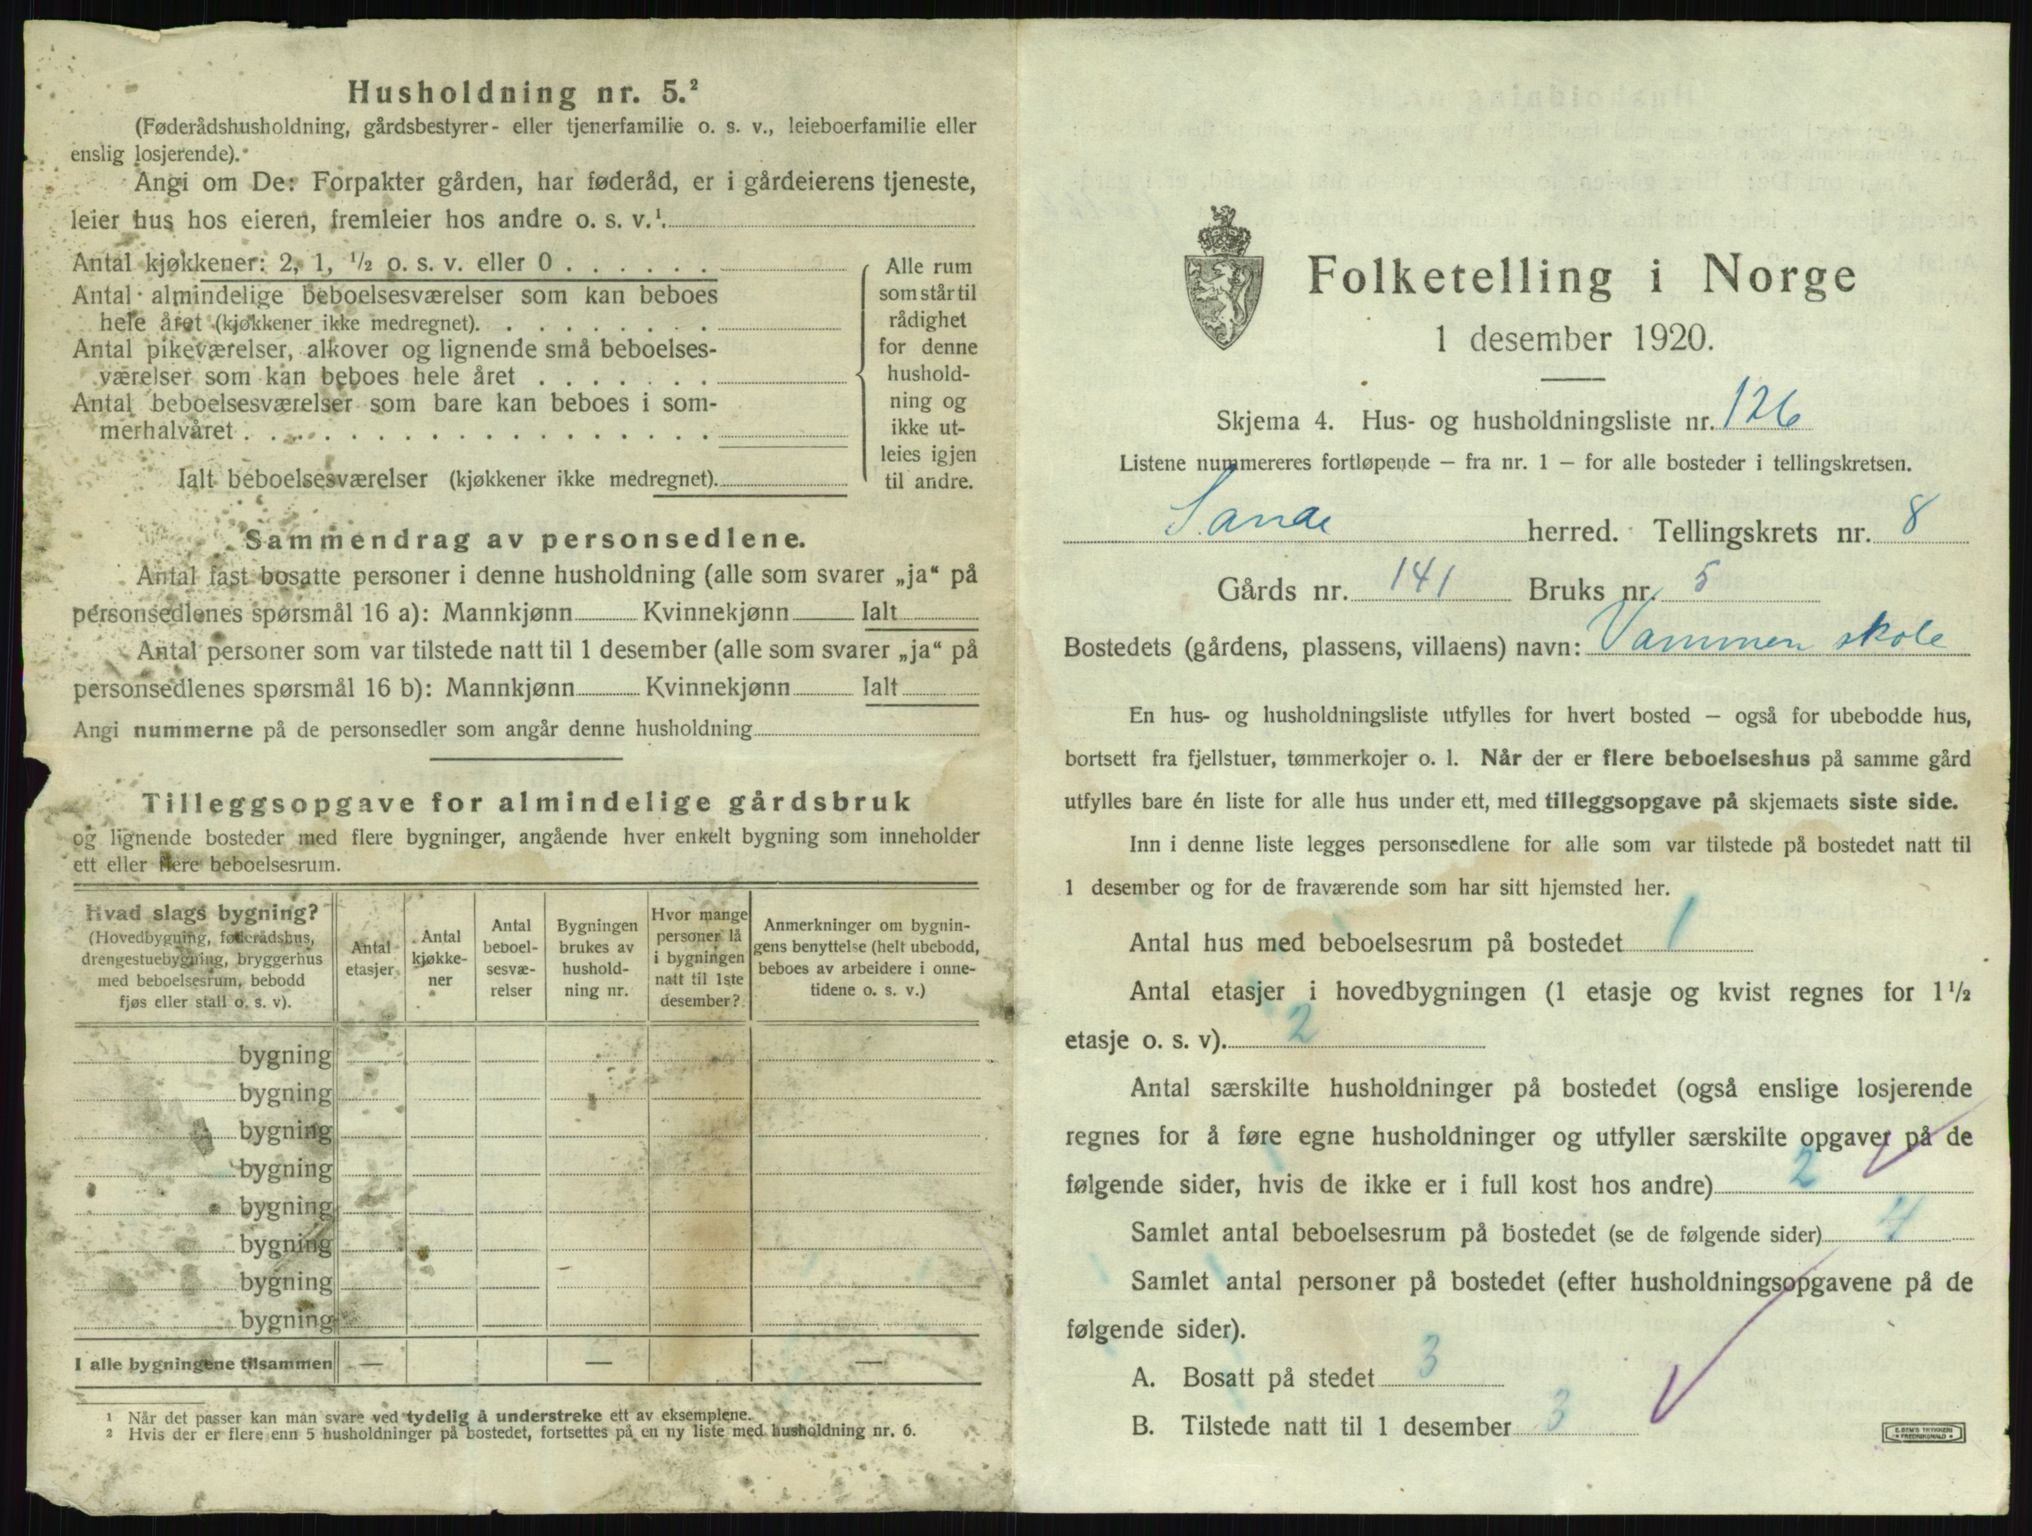 Husholdning nr. 5.²
(Føderådshusholdning, gårdsbestyrer- eller tjenerfamilie o. s. v., leieboerfamilie eller
enslig losjerende).
Angi om De: Forpakter gården, har føderåd, er i gårdeierens tjeneste,
leier hus hos eieren, fremleier hos andre o. s. v.¹.
Antal kjøkkener: 2, 1, ½ o. s. v. eller 0 . . . . . .
Antal almindelige beboelsesværelser som kan beboes
hele året (kjøkkener ikke medregnet). . . . . . . . .
Antal pikeværelser, alkover og lignende små beboelses-
værelser som kan beboes hele året . . . . . . .
Antal beboelsesværelser som bare kan beboes i som-
merhalvåret . . . . . . . . . . . . . . . . . .
Ialt beboelsesværelser (kjøkkener ikke medregnet).
Alle rum
som står til
rådighet
for denne
hushold-
ning og
ikke ut-
leies igjen
til andre.
Sammendrag av personsedlene.
Antal fast bosatte personer i denne husholdning (alle som svarer „ja“ på
personsedlenes spørsmål 16 a): Mannkjønn Kvinnekjønn Ialt
Antal personer som var tilstede natt til 1 desember (alle som svarer „ja“ på
personsedlenes spørsmål 16 b): Mannkjønn Kvinnekjønn Ialt
Angi nummerne på de personsedler som angår denne husholdning
Tilleggsopgave for almindelige gårdsbruk
og lignende bosteder med flere bygninger, angående hver enkelt bygning som inneholder
ett eller flere beboelsesrum.
Hvad slags bygning?
(Hovedbygning, føderådshus,
drengestuebygning, bryggerhus
med beboelsesrum, bebodd
fjøs eller stall o. s. v).
Antal
etasjer
Antal
kjøkke-
ner
Antal
beboel-
sesvæ-
relser
Bygningen
brukes av
hushold-
ning nr.
Hvor mange
personer lå
i bygningen
natt til 1ste
desember?
Anmerkninger om bygnin-
gens benyttelse (helt ubebodd,
beboes av arbeidere i onne-
tidene o. s. v.)
bygning
bygning
bygning
bygning
bygning
bygning
bygning
bygning
I alle bygningene tilsammen — — —
¹ Når det passer kan man svare ved tydelig å understreke ett av eksemplene.
² Hvis der er flere enn 5 husholdninger på bostedet, fortsettes på en ny liste med husholdning nr. 6.
Folketelling i Norge
1 desember 1920.
Skjema 4. Hus- og husholdningsliste nr. 126
Listene nummereres fortløpende – fra nr. 1 – for alle bosteder i tellingskretsen.
Sande herred. Tellingskrets nr. 8
Gårds nr. 141 Bruks nr. 5
Bostedets (gårdens, plassens, villaens) navn: Vammen skole
En hus- og husholdningsliste utfylles for hvert bosted – også for ubebodde hus,
bortsett fra fjellstuer, tømmerkojer o. l. Når der er flere beboelseshus på samme gård
utfylles bare én liste for alle hus under ett, med tilleggsopgave på skjemaets siste side.
Inn i denne liste legges personsedlene for alle som var tilstede på bostedet natt til
1 desember og for de fraværende som har sitt hjemsted her.
Antal hus med beboelsesrum på bostedet 1
Antal etasjer i hovedbygningen (1 etasje og kvist regnes for 1½
etasje o. s. v). 2
Antal særskilte husholdninger på bostedet (også enslige losjerende
regnes for å føre egne husholdninger og utfyller særskilte opgaver på de
følgende sider, hvis de ikke er i full kost hos andre) 2
Samlet antal beboelsesrum på bostedet (se de følgende sider) 4
Samlet antal personer på bostedet (efter husholdningsopgavene på de
følgende sider).
A. Bosatt på stedet 3
B. Tilstede natt til 1 desember 3